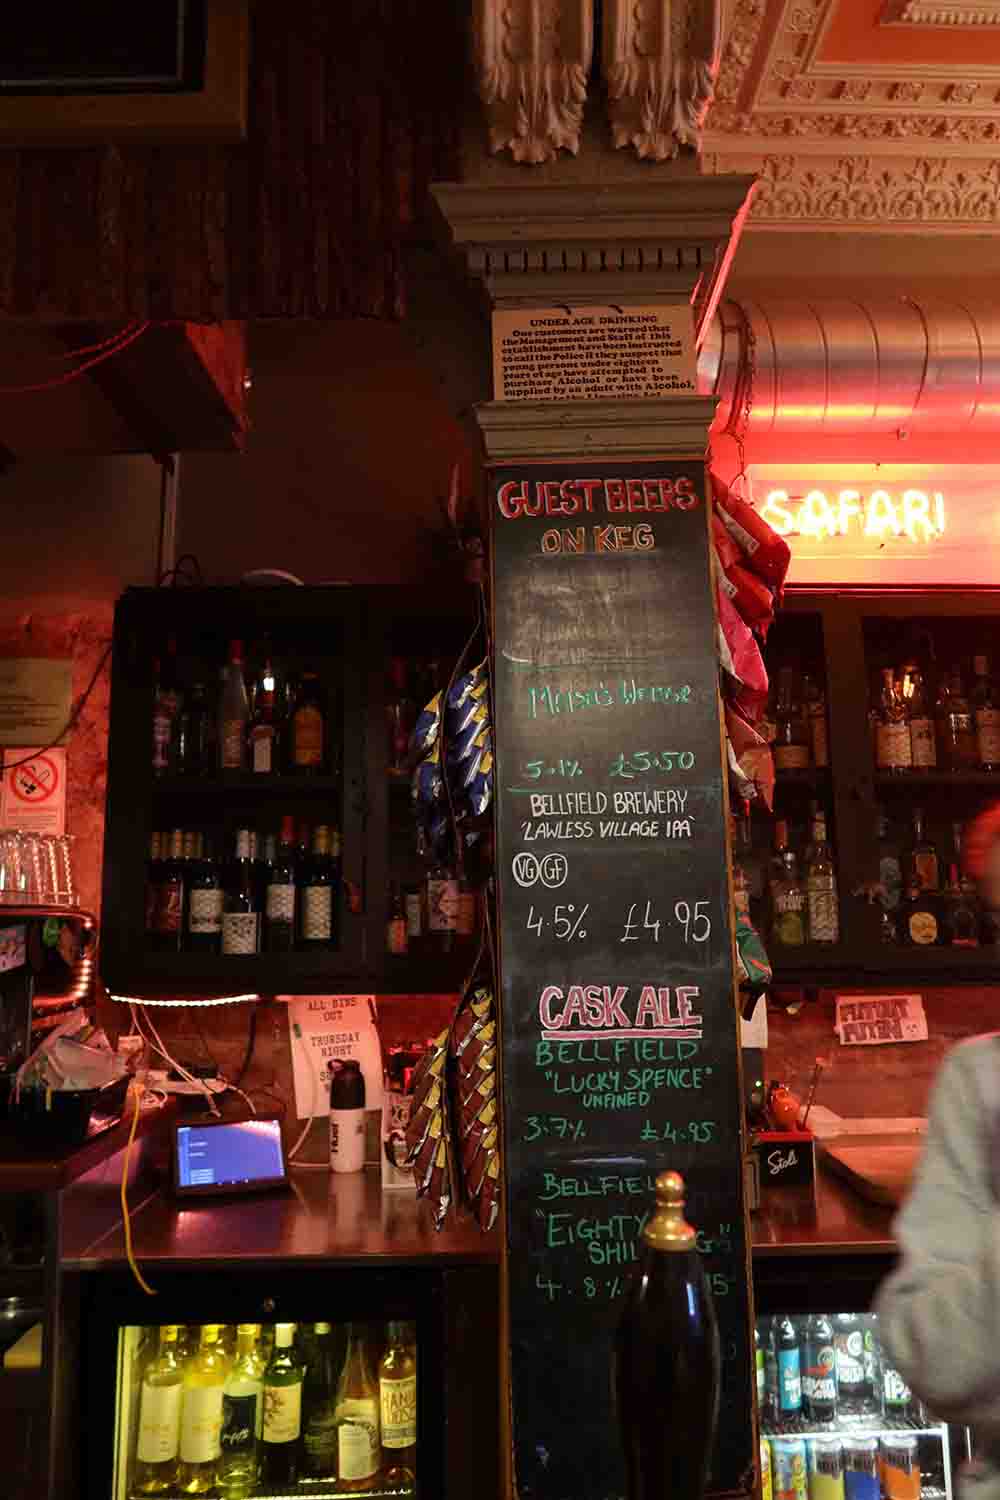 UNDER AGE DRINKING
Our customers are warned that
the Management and Staff of this
establishment have been instructed
to call the Police if they suspect that
young persons under eighteen
years of age have attempted to
purchase Alcohol or have been
supplied by an adult with Alcohol,
GUEST BEERS
ON KEG
SAFARI
5.1% £5.50
BELLFIELD BREWERY
'LAWLESS VILLAGE IPA'
VG GF
4.5% £4.95
CASK ALE
BELLFIELD
"LUCKY SPENCE"
UNFINED
3.7% £4.95
BELLFIEL
"EIGHTY
SHIL G"
4.8% 15
ALL BINS
OUT
THURSDAY
NIGHT
Huel
Stoli